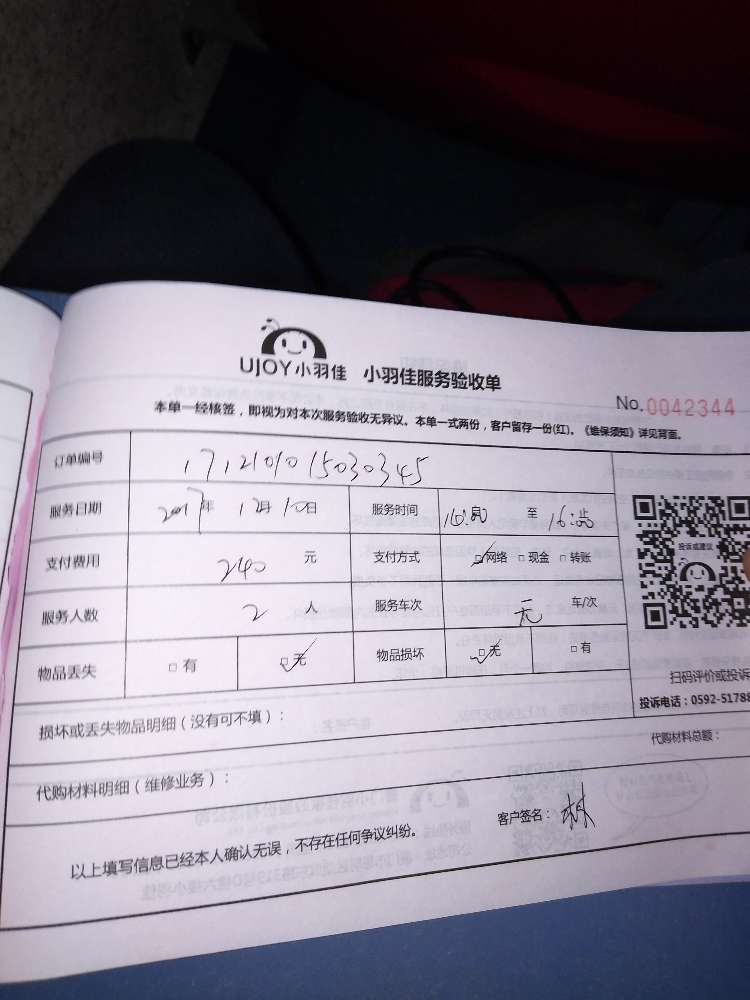 UJOY小羽佳 小羽佳服务验收单
No.0042344
本单一经核签，即视为对本次服务验收无异议。本单一式两份，客户留存一份(红)。《维保须知》详见背面。
订单编号 1712101015030345
服务日期 2017年 12月 10日 服务时间 至
支付费用 240 元 支付方式 网络 现金 转账
服务人数 2 人 服务车次 无 车/次
物品丢失 有 无 物品损坏 无 有
投诉或建议
扫码评价或投诉
投诉电话：0592-51788
损坏或丢失物品明细（没有可不填）：
代购材料总额：
代购材料明细（维修业务）：
客户签名：林
以上填写信息已经本人确认无误，不存在任何争议纠纷。